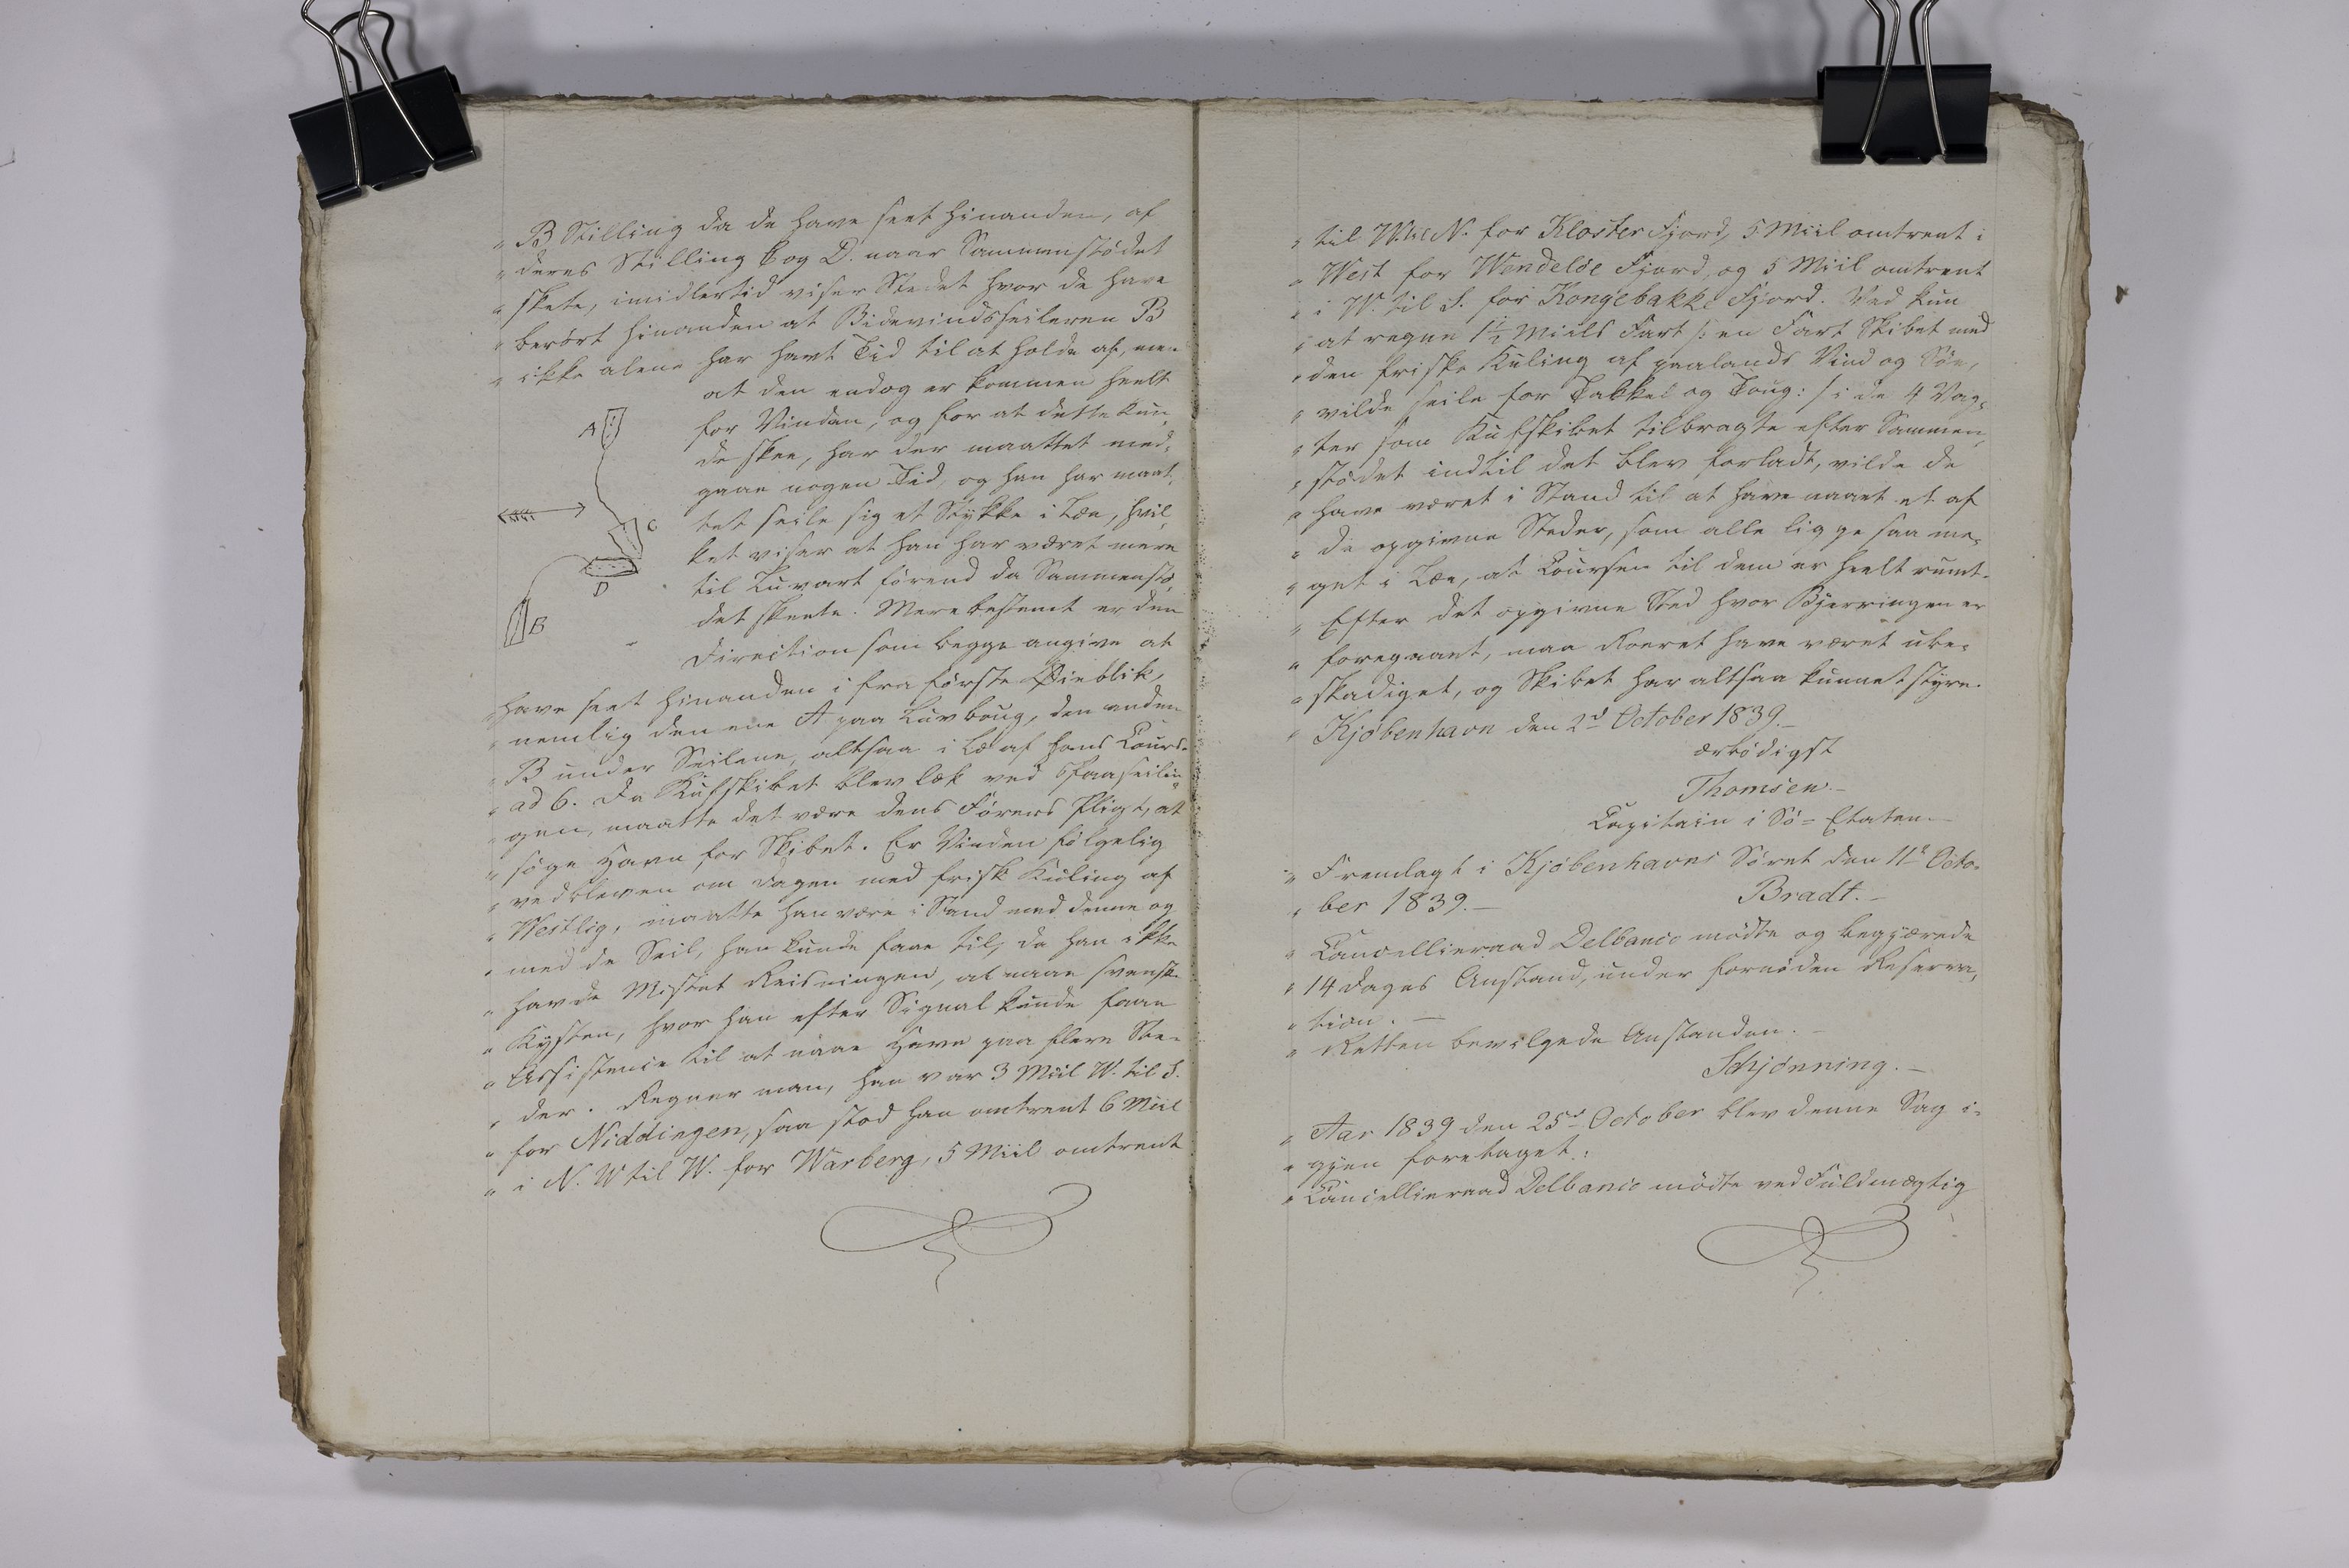 „ B Stilling da de have seet hinanden, af
„ deres Stilling C og D. naar Sammenstødet
„ skete, imidlertid viser Stedet hvor de have
„ berört hinanden at Bidevindsseileren B
„ ikke alene har havt Tid til at holde af, men
at den endog er kommen heelt
for Vinden, og for at dette kun„
de skee, har der maattet med„
gaae nogen Tid, og han har maat„
tet seile sig et Stykke i Læe, hvil„
ket viser at han har været mere
til Luvart förend da Sammenstö„
det skeete. Mere bestemt er den
Direction som begge angive at
A
C
D
B
„ have seet hinanden i fra förste Øieblik,
„ nemlig den ene A paa Luvboug, den anden
„ B under Seilene, altsaa i Læ af hans Cours.
„ ad 6. Da Kufskibet blev læk ved Paaseilin„
„ gen, maatte det være dens Förers Pligt, at
„ söge Havn for Skibet. Er Vinden fölgelig
„ vedbleven om Dagen med frisk Kuling af
„ Westlig, maatte han være i Stand med denne og
„ med de Seil, han kunde faae til, da han ikke
„ havde Mistet Reisningen, at naae svenske
„ Kysten, hvor han efter Signal kunde faae
„ Assistence til at naae Havn paa flere Ste„
„ der. Regner man, han var 3 Miil W. til S.
„ for Niddingen, saa stod han omtrent 6 Miil
„ i N. W til W. for Warberg, 5 Miil omtrent
„ til W. til N. for Kloster Fjord, 5 Miil omtrent i
„ West for Wendelöe Fjord, og 5 Miil omtrent
„ i W. til S. for Kongebakke Fjord. Ved kun
„ at regne 1½ Miils Fart /: en Fart Skibet med
„ den friske Kuling af paalands Vind og Söe,
„ vilde seile for Takkel og Toug: / i de 4 Vag„
„ ter som Kufskibet tilbragte efter Sammen„
„ stödet indtil det blev forladt, vilde de
„ have været i Stand til at have naaet et af
„ de opgivne Steder, som alle ligge saa me„
„ get i Læe, at Coursen til dem er heelt rumt.
„ Efter det opgivne Sted hvor Bjerringen er
„ foregaaet, maa Roeret have været ube„
„ skadiget, og Skibet har altsaa kunnet styre.
„ Kjöbenhavn den 2d October 1839.
ærbödigst
Thomsen.
Capitain i Sö=Etaten
„ Fremlagt i Kjöbenhavns Söret den 11t Octo„
„ ber 1839. Bradt.
„ Cancellieraad Delbanco mödte og begjærede
„ 14 Dages Anstand, under fornöden Reserva„
„ tion.
„ Retten bevilgede Anstanden.
Schjönning.
„ Aar 1839 den 25d October blev denne Sag i„
„ gjen foretaget:
„ Cancellieraad Delbanco mödte ved Fuldmægtig